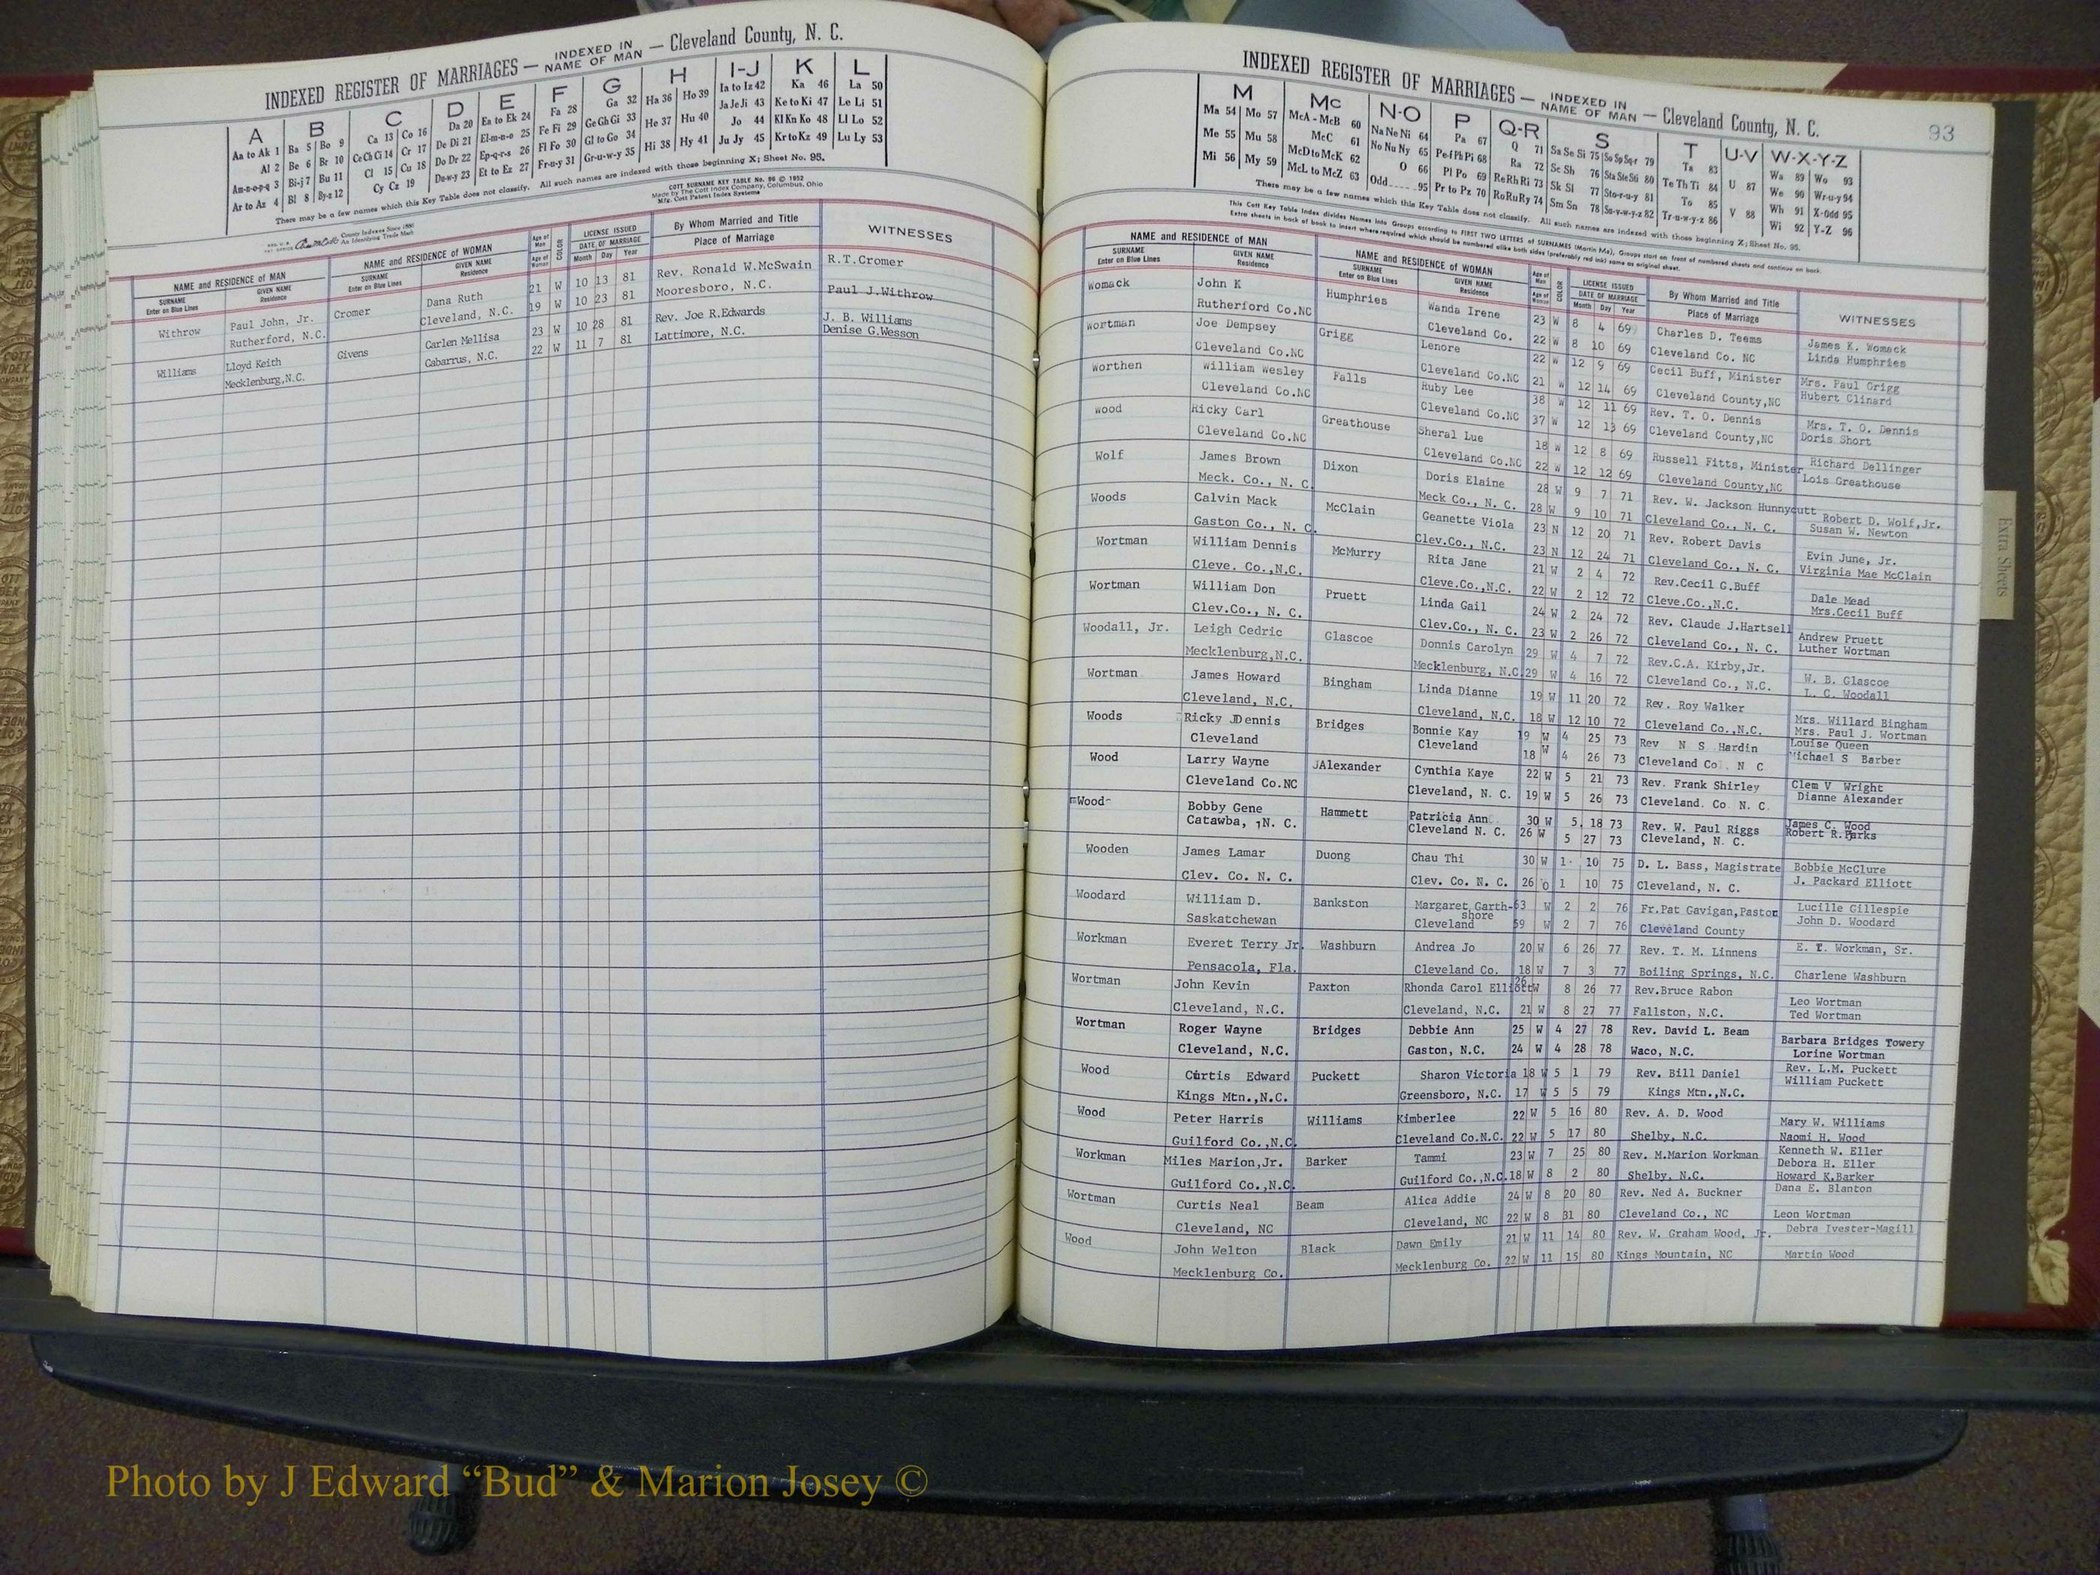 INDEXED REGISTER OF MARRIAGES — INDEXED IN NAME OF MAN — Cleveland County, N. C.
A B C D E F G H I-J K L
Aa to Ak 1 Ba 5 Bo 9 Ca 13 Co 16 Da 20 Ea to Ek 24 Fa 28 Ga 32 Ha 36 Ho 39 Ia to Iz 42 Ka 46 La 50
Al 2 Be 6 Br 10 Ce Ch Ci 14 Cr 17 De Di 21 El-m-n-o 25 Fe Fi 29 Ge Gh Gi 33 He 37 Hu 40 Ja Je Ji 43 Ke to Ki 47 Le Li 51
Am-n-o-p-q 3 Bi-j 7 Bu 11 Cl 15 Cu 18 Do Dr 22 Ep-q-r-s 26 Fl Fo 30 Gl to Go 34 Hi 38 Hy 41 Jo 44 Kl Kn Ko 48 Ll Lo 52
Ar to Az 4 Bl 8 By-z 12 Cy Cz 19 Du-w-y 23 Et to Ez 27 Fr-u-y 31 Gr-u-w-y 35 Ju Jy 45 Kr to Kz 49 Lu Ly 53
There may be a few names which this Key Table does not classify. All such names are indexed with those beginning X; Sheet No. 95.
COTT SURNAME KEY TABLE No. 96 © 1952
Made by The Cott Index Company, Columbus, Ohio
Mfg. Cott Patent Index Systems
County Indexes Since 1888
An Identifying Trade Mark
NAME and RESIDENCE of MAN NAME and RESIDENCE of WOMAN Age of Man Age of Woman COLOR LICENSE ISSUED DATE OF MARRIAGE Month Day Year By Whom Married and Title Place of Marriage WITNESSES
SURNAME Enter on Blue Lines GIVEN NAME Residence SURNAME Enter on Blue Lines GIVEN NAME Residence
Withrow Paul John, Jr. Cromer Dana Ruth 21 W 10 13 81 Rev. Ronald W.McSwain R.T.Cromer
Rutherford, N.C. Cleveland, N.C. 19 W 10 23 81 Mooresboro, N.C. Paul J.Withrow
Williams Lloyd Keith Givens Carlen Mellisa 23 W 10 28 81 Rev. Joe R.Edwards J. B. Williams
Mecklenburg,N.C. Cabarrus, N.C. 22 W 11 7 81 Lattimore, N.C. Denise G.Wesson
INDEXED REGISTER OF MARRIAGES — INDEXED IN NAME OF MAN — Cleveland County, N. C. 93
M Mc N-O P Q-R S T U-V W-X-Y-Z
Ma 54 Mo 57 McA - McB 60 Na Ne Ni 64 Pa 67 Q 71 Sa Se Si 75 So Sp Sq-r 79 Ta 83 U 87 Wa 89 Wo 93
Me 55 Mu 58 McC 61 No Nu Ny 65 Pe-f Ph Pi 68 Ra 72 Sc Sh 76 Sta Ste Sti 80 Te Th Ti 84 V 88 We 90 Wr-u-y 94
Mi 56 My 59 McD to McK 62 O 66 Pl Po 69 Re Rh Ri 73 Sk Sl 77 Sto-r-u-y 81 To 85 Wh 91 X-Odd 95
McL to McZ 63 Odd 95 Pr to Pz 70 Ro Ru Ry 74 Sm Sn 78 Su-v-w-y-z 82 Tr-u-w-y-z 86 Wi 92 Y-Z 96
There may be a few names which this Key Table does not classify. All such names are indexed with those beginning X; Sheet No. 95.
This Cott Key Table Index divides Names into Groups according to FIRST TWO LETTERS of SURNAMES (Martin Ma), Groups start on front of numbered sheets and continue on back.
Extra sheets in back of book to insert where required which should be numbered alike both sides (preferably red ink) same as original sheet.
NAME and RESIDENCE of MAN NAME and RESIDENCE of WOMAN Age of Man Age of Woman COLOR LICENSE ISSUED DATE OF MARRIAGE Month Day Year By Whom Married and Title Place of Marriage WITNESSES
SURNAME Enter on Blue Lines GIVEN NAME Residence SURNAME Enter on Blue Lines GIVEN NAME Residence
Womack John K Humphries Wanda Irene 23 W 8 4 69 Charles D. Teems James K. Womack
Rutherford Co.NC Cleveland Co. 22 W 8 10 69 Cleveland Co. NC Linda Humphries
Wortman Joe Dempsey Grigg Lenore 22 W 12 9 69 Cecil Buff, Minister Mrs. Paul Grigg
Cleveland Co.NC Cleveland Co.NC 21 W 12 14 69 Cleveland County,NC Hubert Clinard
Worthen William Wesley Falls Ruby Lee 38 W 12 11 69 Rev. T. O. Dennis Mrs. T. O. Dennis
Cleveland Co.NC Cleveland Co.NC 37 W 12 13 69 Cleveland County,NC Doris Short
Wood Ricky Carl Greathouse Sheral Lue 18 W 12 8 69 Russell Fitts, Minister Richard Dellinger
Cleveland Co.NC Cleveland Co.NC 22 W 12 12 69 Cleveland County,NC Lois Greathouse
Wolf James Brown Dixon Doris Elaine 28 W 9 7 71 Rev. W. Jackson Hunnycutt Robert D. Wolf,Jr.
Meck. Co., N. C. Meck Co., N. C. 28 W 9 10 71 Cleveland Co., N. C. Susan W. Newton
Woods Calvin Mack McClain Geanette Viola 23 N 12 20 71 Rev. Robert Davis Evin June, Jr.
Gaston Co., N. C. Clev.Co., N.C. 23 N 12 24 71 Cleveland Co., N. C. Virginia Mae McClain
Wortman William Dennis McMurry Rita Jane 21 W 2 4 72 Rev.Cecil G.Buff Dale Mead
Cleve. Co.,N.C. Cleve.Co.,N.C. 22 W 2 12 72 Cleve.Co.,N.C. Mrs.Cecil Buff
Wortman William Don Pruett Linda Gail 24 W 2 24 72 Rev. Claude J.Hartsell Andrew Pruett
Clev.Co., N. C. Clev.Co., N. C. 23 W 2 26 72 Cleveland Co., N. C. Luther Wortman
Woodall, Jr. Leigh Cedric Glascoe Donnis Carolyn 29 W 4 7 72 Rev.C.A. Kirby,Jr. W. B. Glascoe
Mecklenburg,N.C. Mecklenburg, N.C. 29 W 4 16 72 Cleveland Co., N.C. L. C. Woodall
Wortman James Howard Bingham Linda Dianne 19 W 11 20 72 Rev. Roy Walker Mrs. Willard Bingham
Cleveland, N.C. Cleveland, N.C. 18 W 12 10 72 Cleveland Co.,N.C. Mrs. Paul J. Wortman
Woods Ricky Dennis Bridges Bonnie Kay 19 W 4 25 73 Rev N S Hardin Louise Queen
Cleveland Cleveland 18 W 4 26 73 Cleveland Co. N C Michael S Barber
Wood Larry Wayne Alexander Cynthia Kaye 22 W 5 21 73 Rev. Frank Shirley Clem V Wright
Cleveland Co.NC Cleveland, N. C. 19 W 5 26 73 Cleveland. Co N. C. Dianne Alexander
Wood Bobby Gene Hammett Patricia Ann 30 W 5 18 73 Rev. W. Paul Riggs James C. Wood
Catawba, N. C. Cleveland N. C. 26 W 5 27 73 Cleveland, N. C. Robert R.Parks
Wooden James Lamar Duong Chau Thi 30 W 1 10 75 D. L. Bass, Magistrate Bobbie McClure
Clev. Co. N. C. Clev. Co. N. C. 26 O 1 10 75 Cleveland, N. C. J. Packard Elliott
Woodard William D. Bankston Margaret Garth-shore 63 W 2 2 76 Fr.Pat Gavigan,Pastor Lucille Gillespie
Saskatchewan Cleveland 59 W 2 7 76 Cleveland County John D. Woodard
Workman Everet Terry Jr. Washburn Andrea Jo 20 W 6 26 77 Rev. T. M. Linnens E. T. Workman, Sr.
Pensacola, Fla. Cleveland Co. 18 W 7 3 77 Boiling Springs, N.C. Charlene Washburn
Wortman John Kevin Paxton Rhonda Carol Elliott 26 W 8 26 77 Rev.Bruce Rabon Leo Wortman
Cleveland, N.C. Cleveland, N.C. 21 W 8 27 77 Fallston, N.C. Ted Wortman
Wortman Roger Wayne Bridges Debbie Ann 25 W 4 27 78 Rev. David L. Beam Barbara Bridges Towery
Cleveland, N.C. Gaston, N.C. 24 W 4 28 78 Waco, N.C. Lorine Wortman
Wood Curtis Edward Puckett Sharon Victoria 18 W 5 1 79 Rev. Bill Daniel Rev. L.M. Puckett
Kings Mtn.,N.C. Greensboro, N.C. 17 W 5 5 79 Kings Mtn.,N.C. William Puckett
Wood Peter Harris Williams Kimberlee 22 W 5 16 80 Rev. A. D. Wood Mary W. Williams
Guilford Co.,N.C. Cleveland Co.N.C. 22 W 5 17 80 Shelby, N.C. Naomi H. Wood
Workman Miles Marion,Jr. Barker Tammi 23 W 7 25 80 Rev. M.Marion Workman Kenneth W. Eller
Debora H. Eller
Guilford Co.,N.C. Guilford Co.,N.C. 18 W 8 2 80 Shelby, N.C. Howard K.Barker
Wortman Curtis Neal Beam Alica Addie 24 W 8 20 80 Rev. Ned A. Buckner Dana E. Blanton
Cleveland, NC Cleveland, NC 22 W 8 31 80 Cleveland Co., NC Leon Wortman
Wood John Welton Black Dawn Emily 21 W 11 14 80 Rev. W. Graham Wood, Jr. Debra Ivester-Magill
Mecklenburg Co. Mecklenburg Co. 22 W 11 15 80 Kings Mountain, NC Martin Wood
Extra Sheets
Photo by J Edward “Bud” & Marion Josey ©